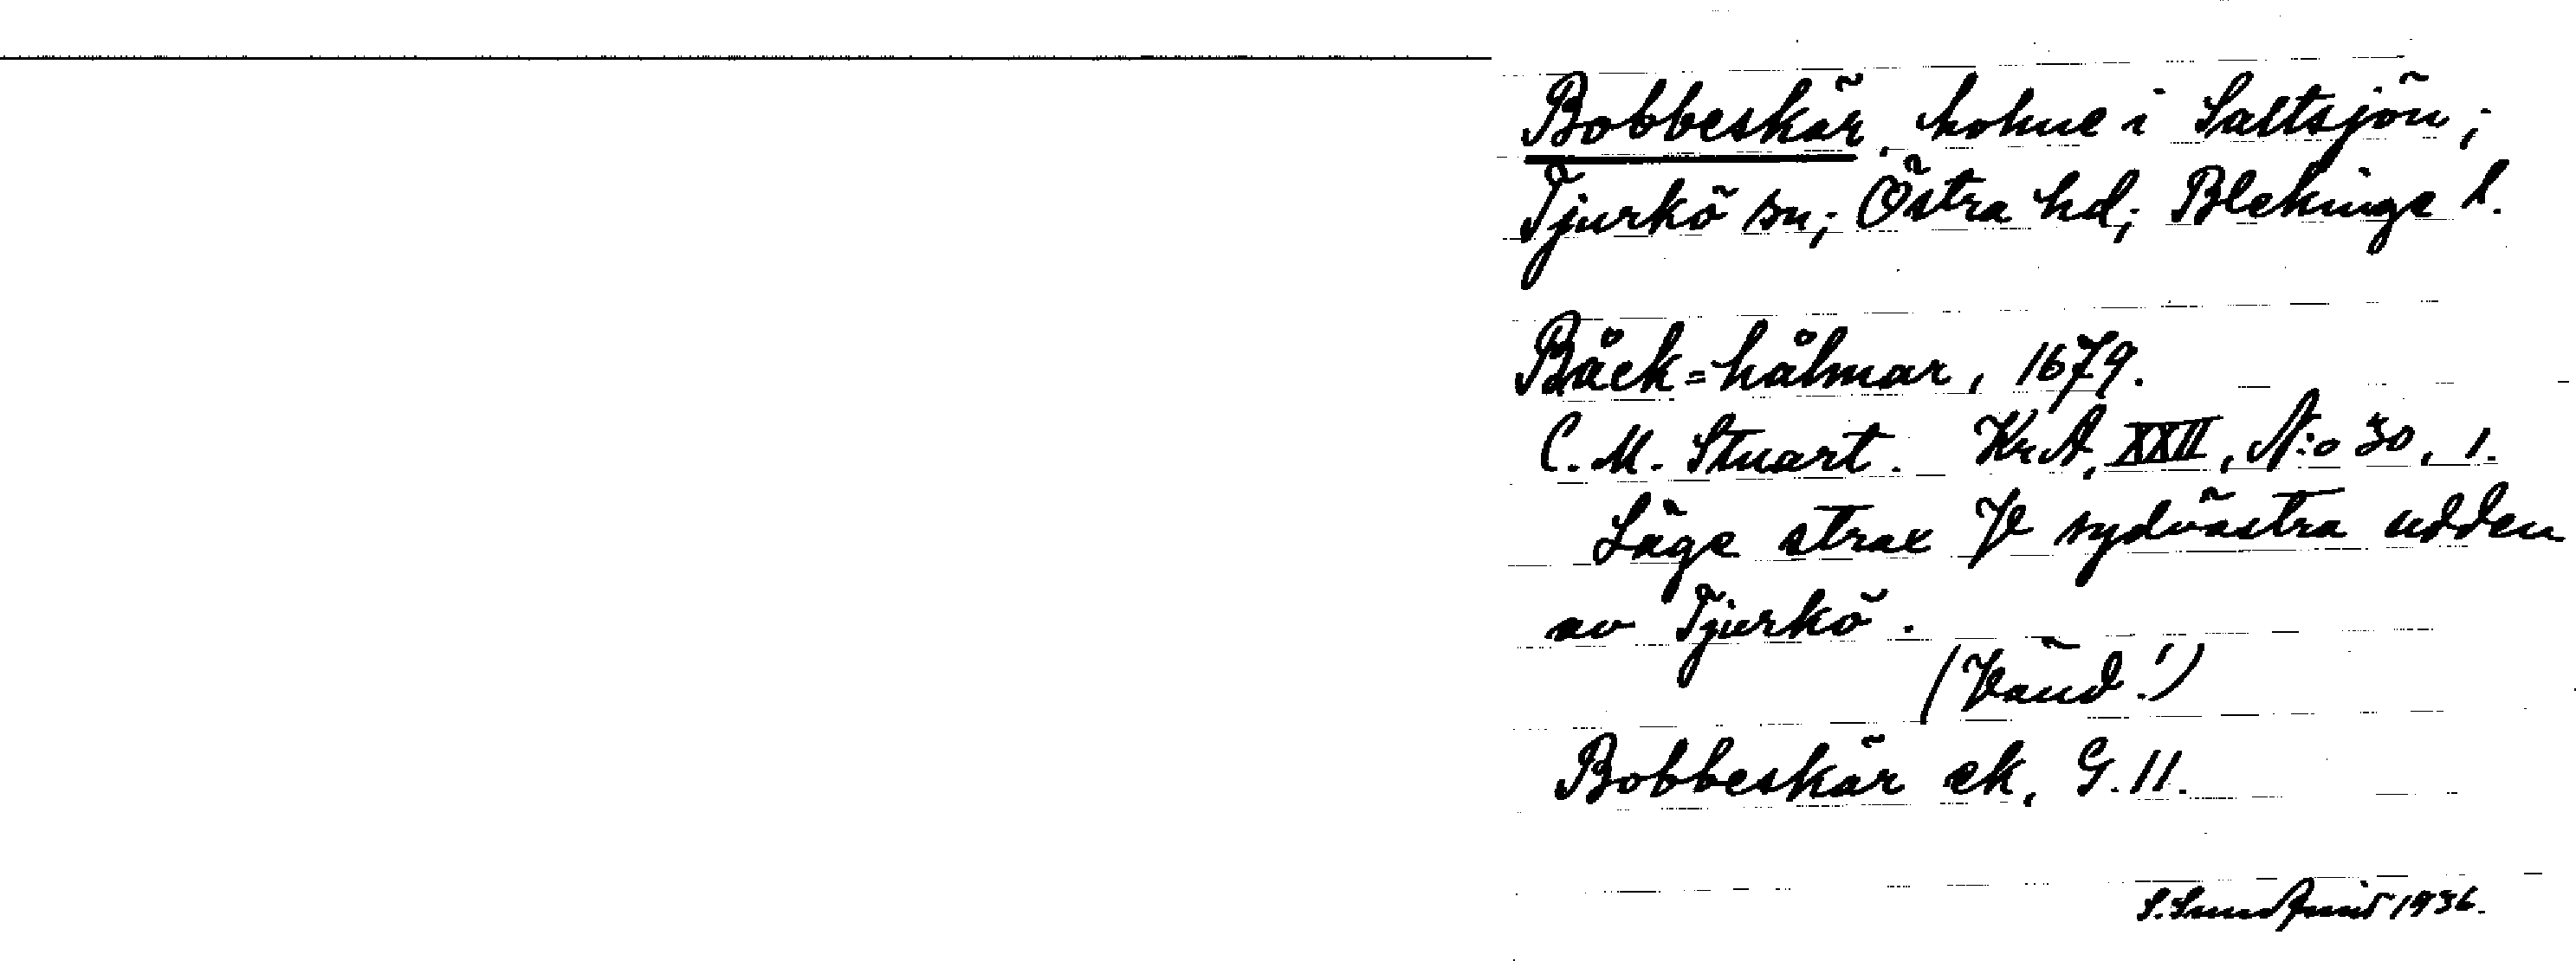 Bobbeskär, holme i Saltsjön;
Tjurkö sn; Östra hd; Blekinge l.
Båck=hålmar, 1679.
C. M. Stuart. KrA, XXII, N:o 30, 1.
Läge strax V sydvästra udden
av Tjurkö.
(Vänd!)
Bobbeskär ek, G. 11.
S. Sundquist 1936.